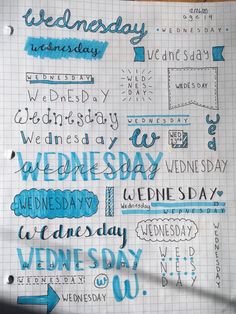 wednesday
wednesday
wednesday
WEDNESDAY
WED
NES
DAY
WEDESDAY
WeDnEsDaY
Wednesday
W
Wed
Wednesday
WEDNESDAY
WEDNESDAY
WEDNESDAY
WEDNESDAY
Wednesday
WEDNESDAY
WEDNESDAY
Wednesday
WEDNESDAY
WEDNESDAY
WEDNESDAY
WED
NES
DAY
WEDNESDAY
W
WEDNESDAY
W.
WEDNESDAY